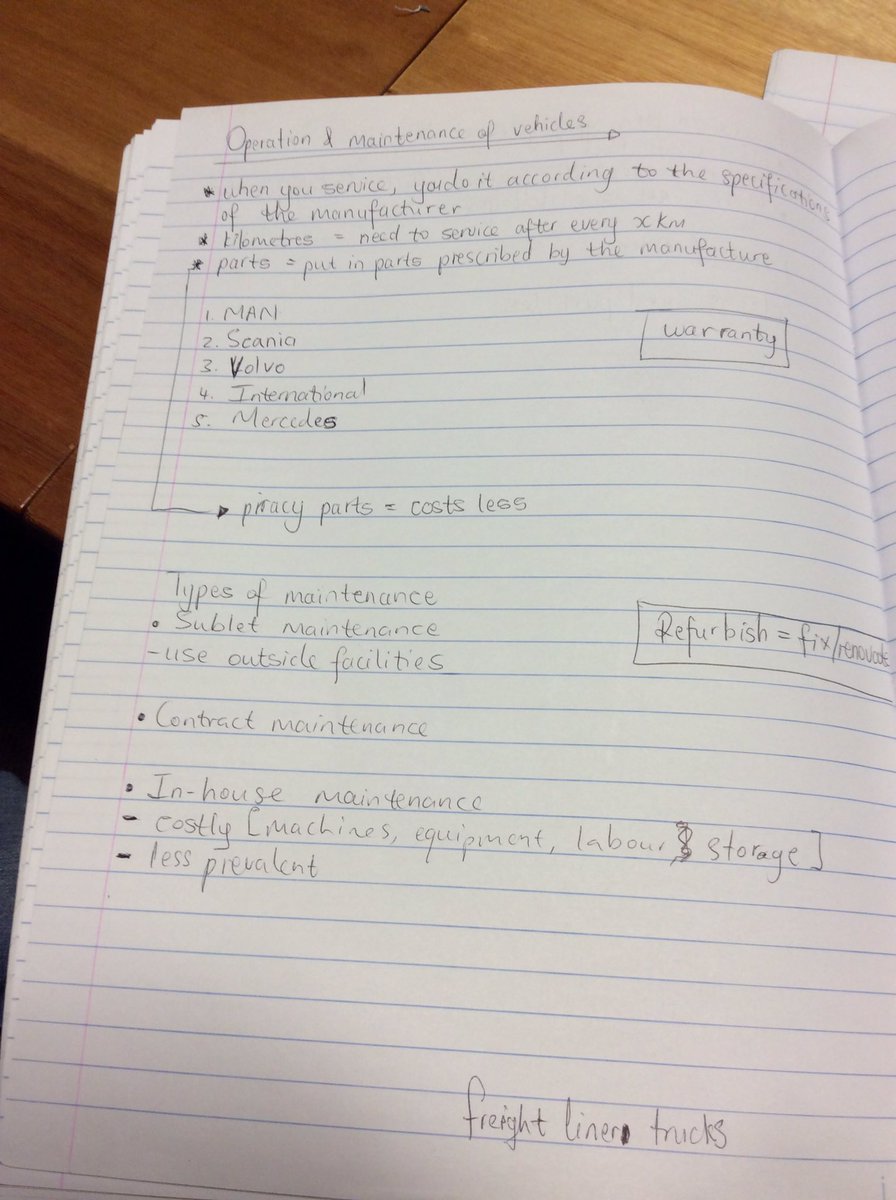 Operation & maintenance of vehicles
* when you service, you do it according to the specifications
of the manufacturer
* kilometres = need to service after every x km
* parts = put in parts prescribed by the manufacture
1. MAN
2. Scania
warranty
3. Volvo
4. International
5. Mercedes
piracy parts = costs less
Types of maintenance
• Sublet maintenance
Refurbish = fix/renovate
- use outside facilities
• Contract maintenance
• In-house maintenance
- costly [machines, equipment, labour & storage]
- less prevalent
freight liner trucks